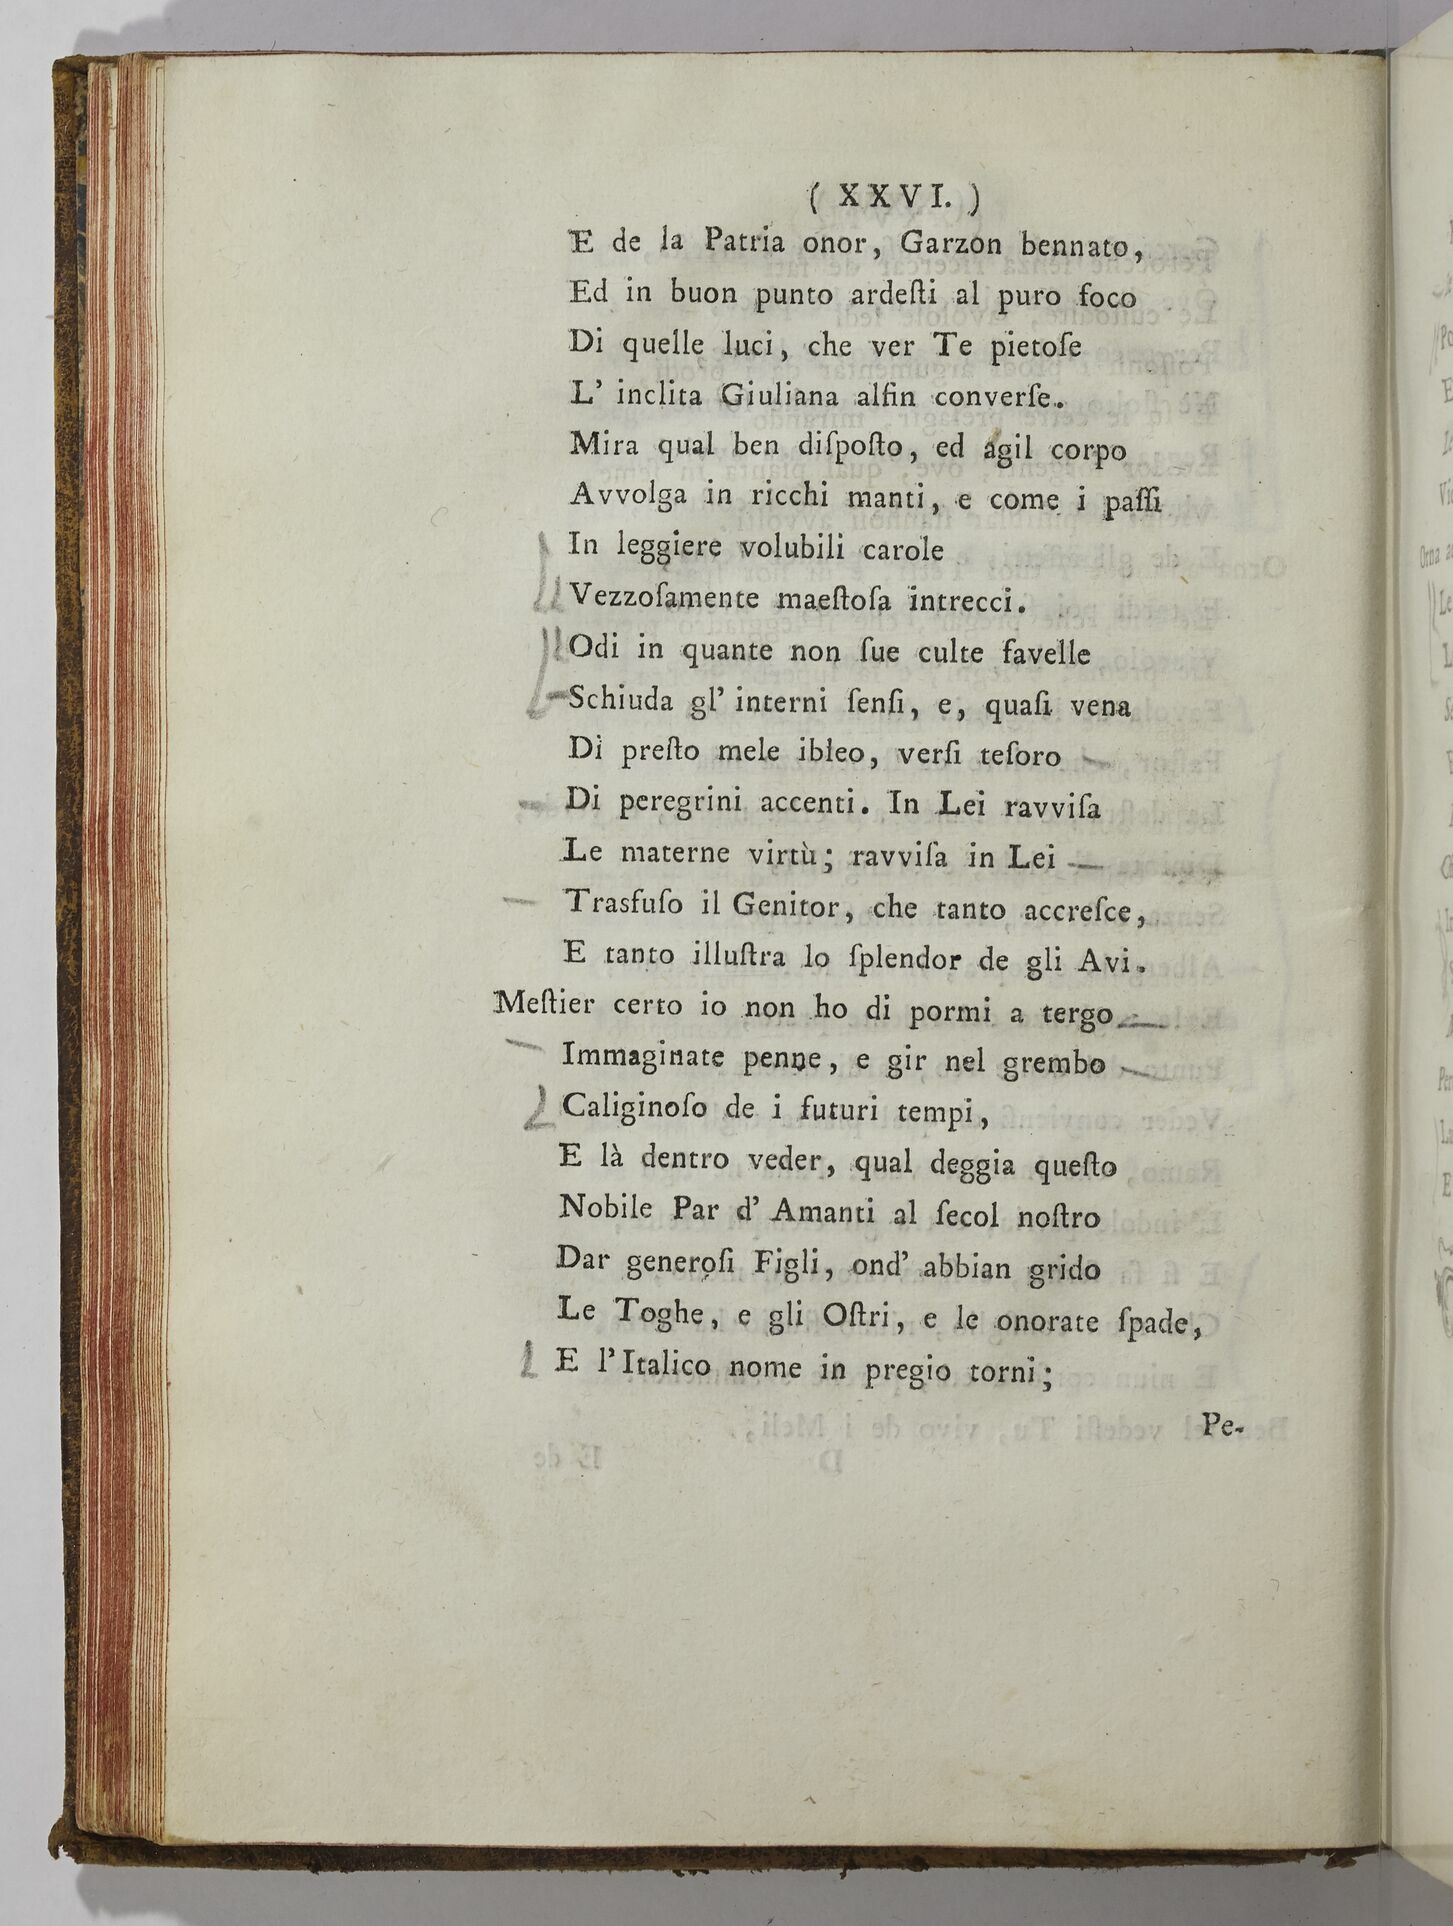 ( XXVI. )
E de la Patria onor, Garzon bennato,
Ed in buon punto ardeſti al puro foco
Di quelle luci, che ver Te pietoſe
L' inclita Giuliana alfin converſe.
Mira qual ben diſpoſto, ed agil corpo
Avvolga in ricchi manti, e come i paſſi
In leggiere volubili carole
Vezzoſamente maeſtoſa intrecci.
Odi in quante non ſue culte favelle
Schiuda gl' interni ſenſi, e, quaſi vena
Di preſto mele ibleo, verſi teſoro
Di peregrini accenti. In Lei ravviſa
Le materne virtù; ravviſa in Lei
Trasfuſo il Genitor, che tanto accreſce,
E tanto illuſtra lo ſplendor de gli Avi.
Meſtier certo io non ho di pormi a tergo
Immaginate penne, e gir nel grembo
Caliginoſo de i futuri tempi,
E là dentro veder, qual deggia queſto
Nobile Par d' Amanti al ſecol noſtro
Dar generoſi Figli, ond' abbian grido
Le Toghe, e gli Oſtri, e le onorate ſpade,
E l'Italico nome in pregio torni;
Pe-